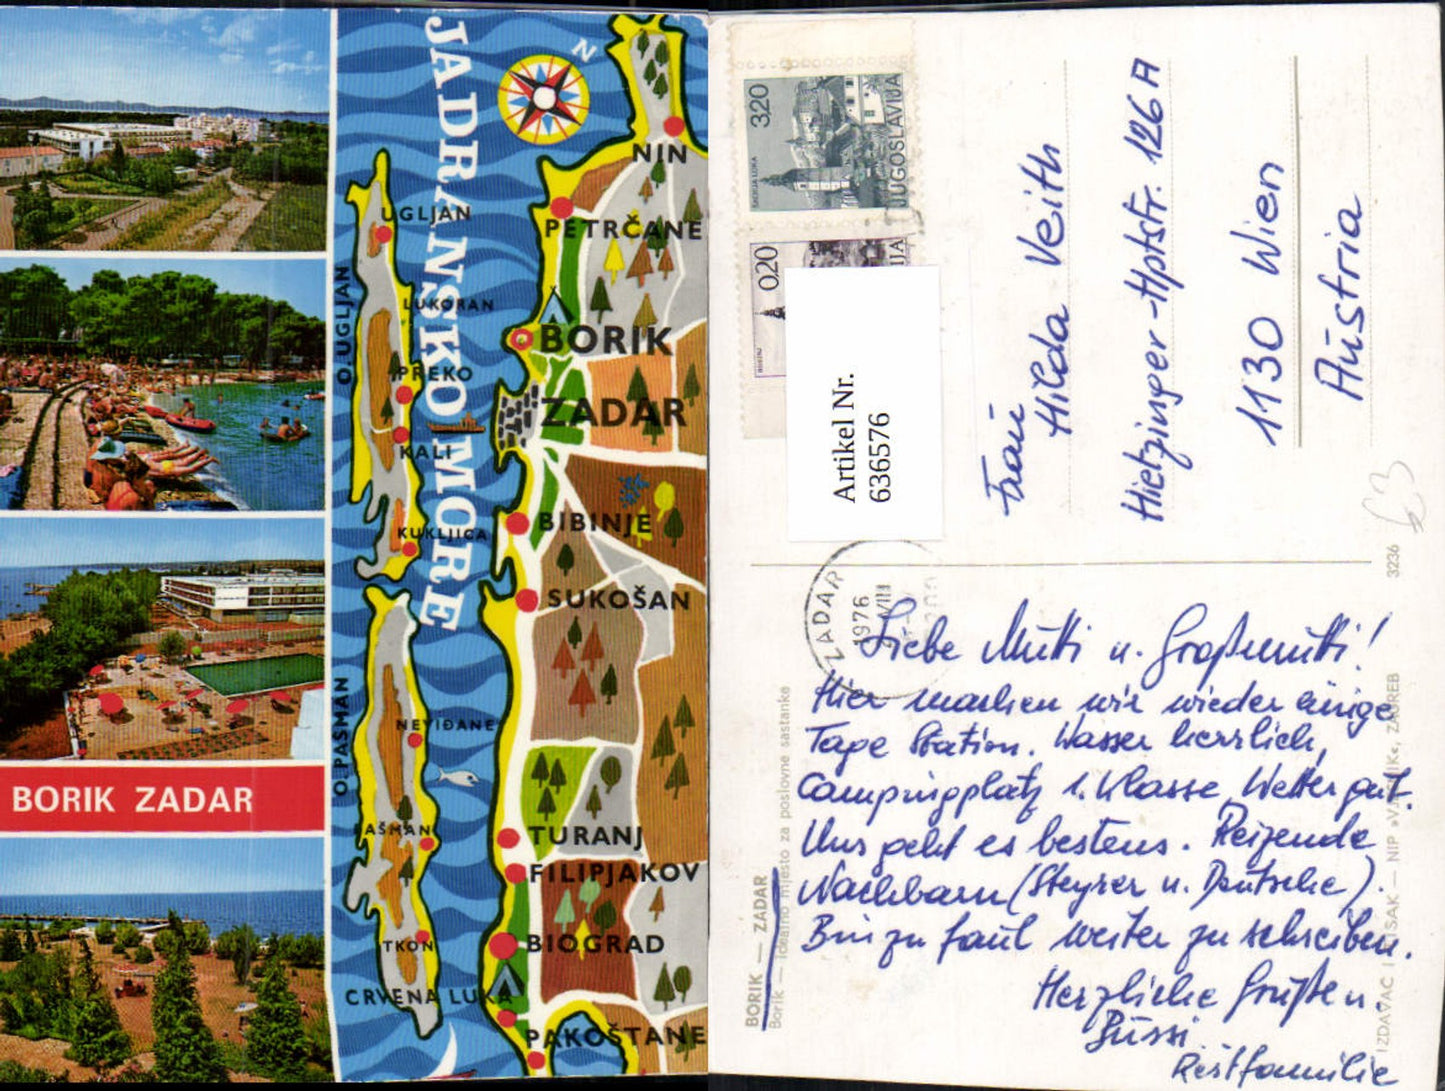 BORIK ZADAR
JADRANSKO MORE
N
NIN
PETRČANE
UGLJAN
O.UGLJAN
LUKORAN
BORIK
PREKO
ZADAR
KALI
BIBINJE
KUKLJICA
SUKOŠAN
O.PAŠMAN
NEVIĐANE
PAŠMAN
TURANJ
FILIPJAKOV
TKON
BIOGRAD
CRVENA LUKA
PAKOŠTANE
3,20
JUGOSLAVIJA
BANJA LUKA
0,20
Artikel Nr.
636576
ZADAR
1976
VIII
Frau
Hilda Veith
Hietzinger-Hptstr. 126 A
1130 Wien
Austria
63
Liebe Mutti u. Großmutti!
Hier machen wir wieder einige
Tage Station. Wasser herrlich,
Campingplatz 1. Klasse, Wetter gut.
Uns geht es bestens. Reizende
Nachbarn (Steyrer u. Deutsche).
Bin zu faul weiter zu schreiben.
Herzliche Grüße u.
Bussi
Restfamilie
BORIK — ZADAR
Borik — idealno mjesto za poslovne sastanke
IZDAVAČ I TISAK — NIP »VJESNIK«, ZAGREB
3236